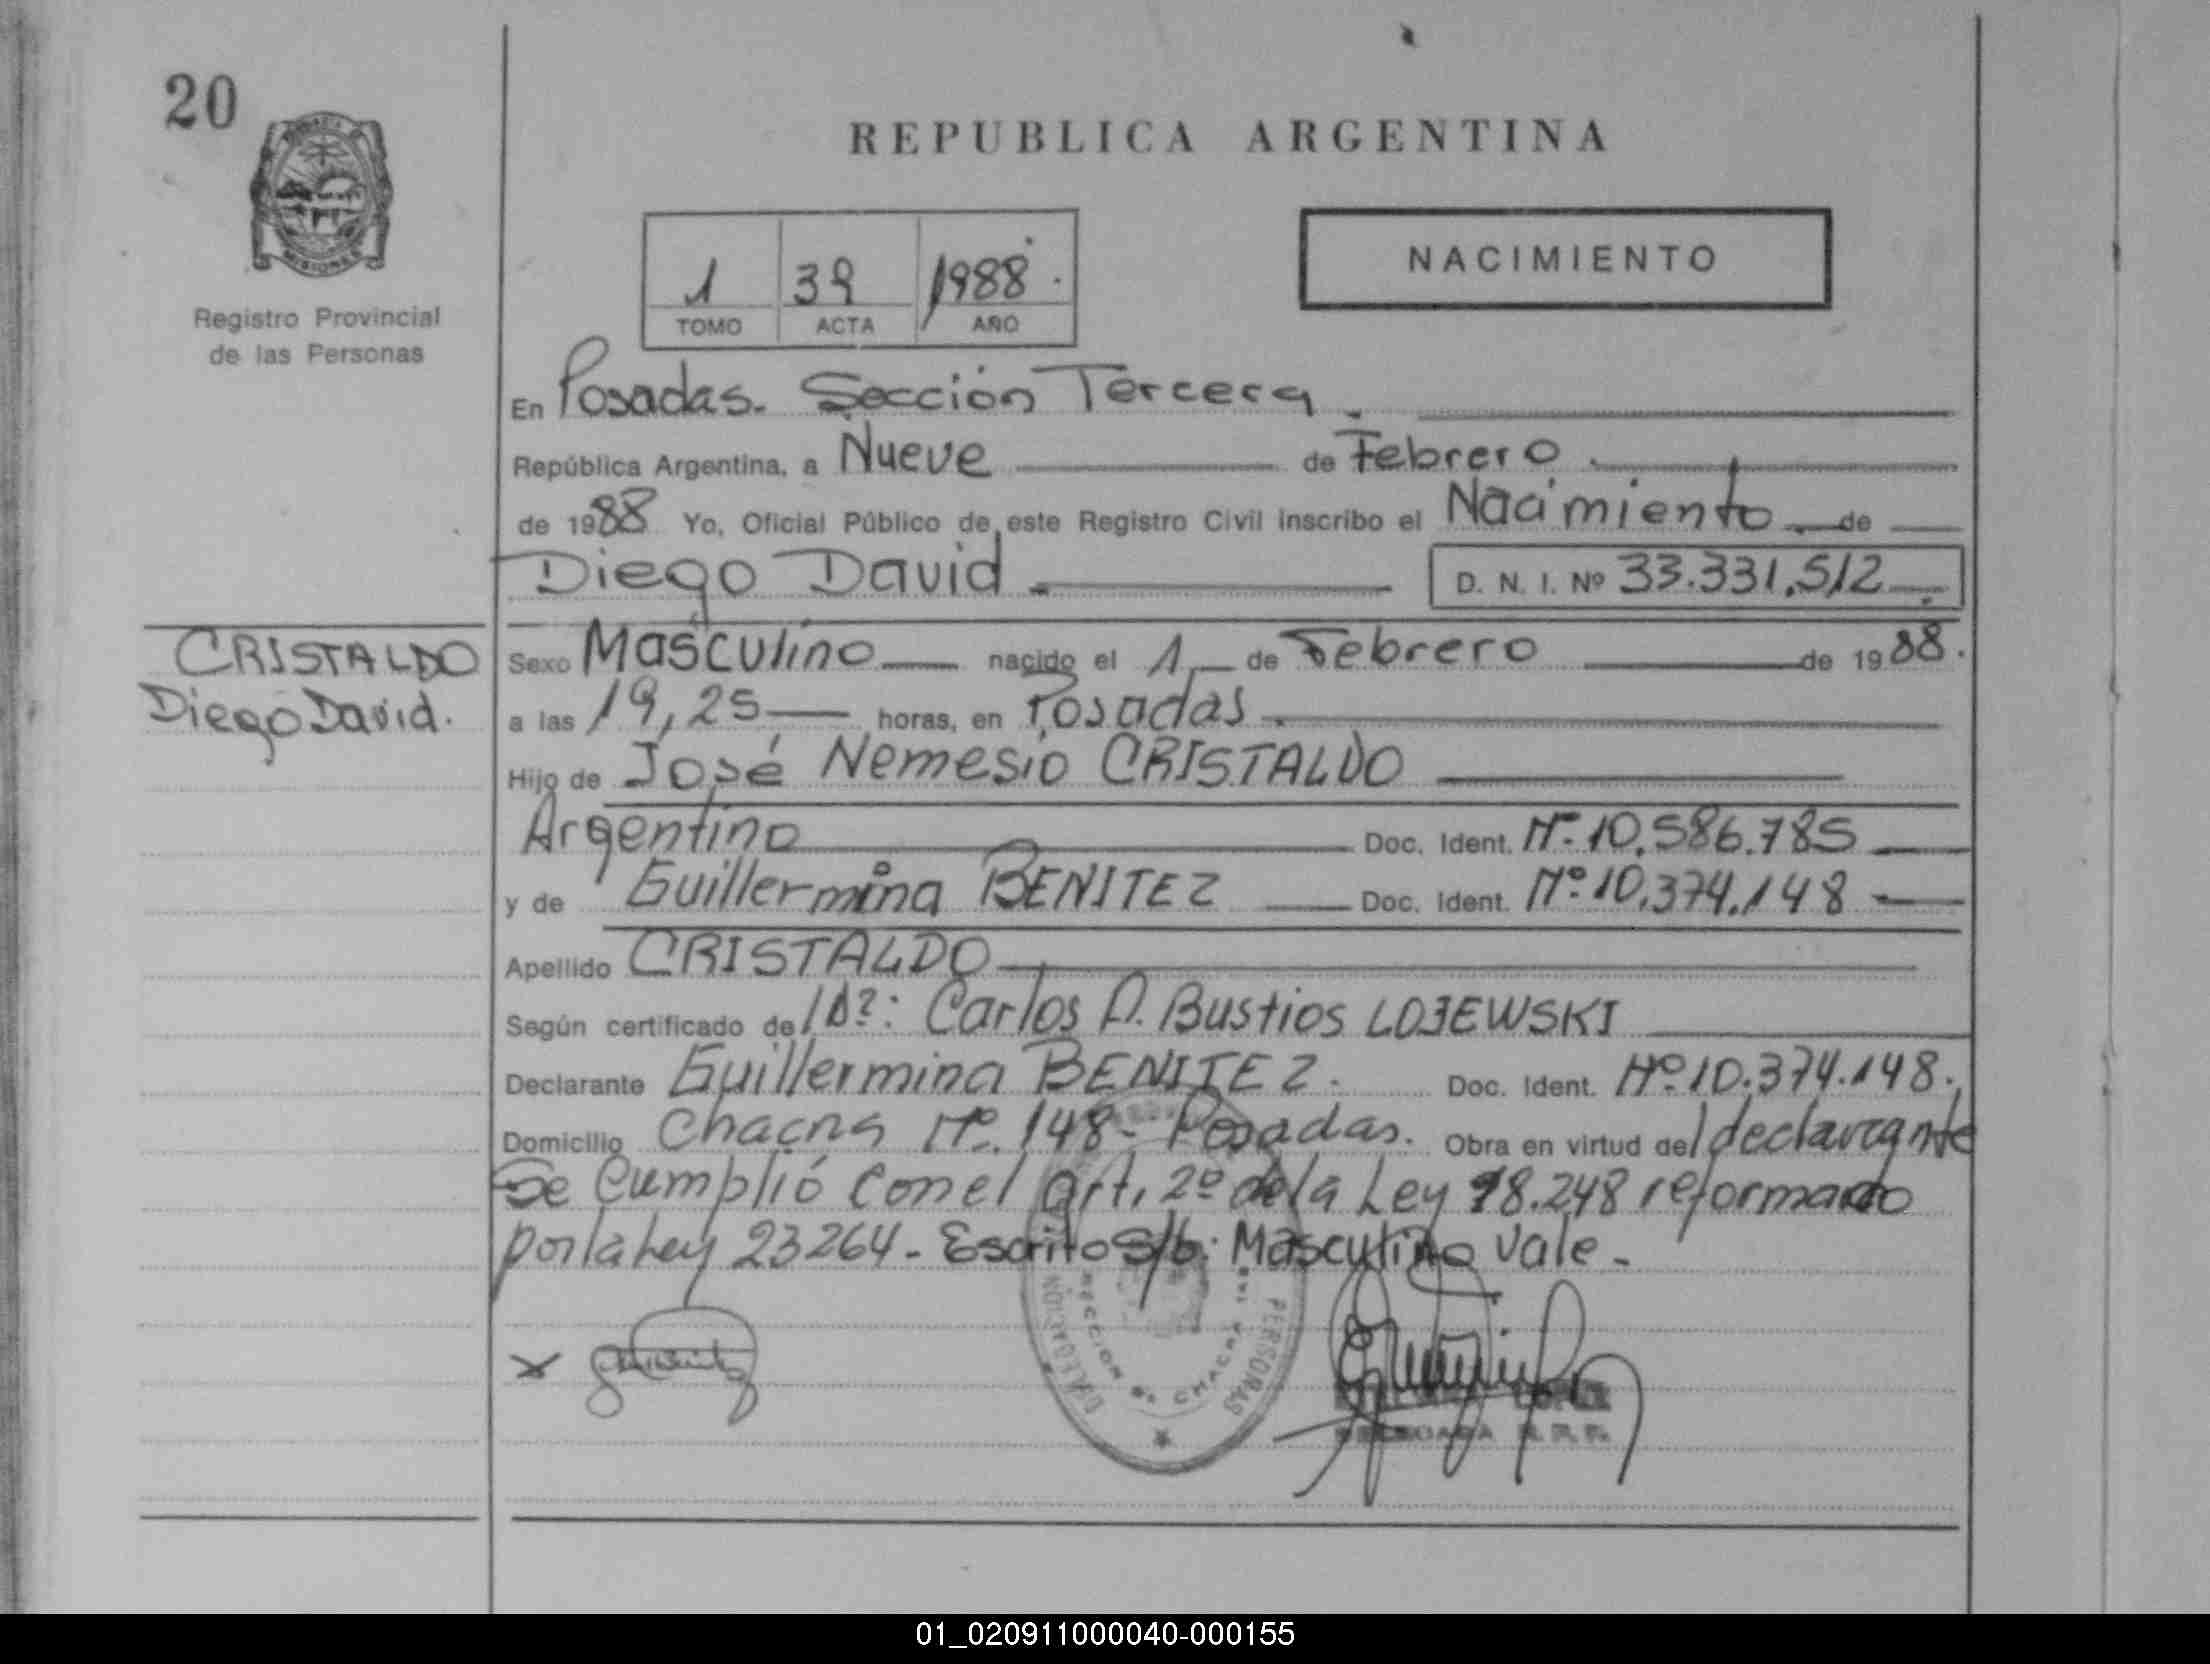 20
REPUBLICA ARGENTINA
MISIONES
Registro Provincial
de las Personas
1 39 1988
TOMO ACTA AÑO
NACIMIENTO
En Posadas. Sección Tercera.
República Argentina, a Nueve de Febrero
de 1988 Yo, Oficial Público de este Registro Civil inscribo el Nacimiento de
Diego David D. N. I. Nº 33.331.512
CRISTALDO
Diego David.
Sexo Masculino nacido el 1 de Febrero de 1988.
a las 19,25 horas, en Posadas
Hijo de José Nemesio CRISTALDO
Argentino Doc. Ident. Nº 10.586.785
y de Guillermina BENITEZ Doc. Ident. Nº 10.374.148
Apellido CRISTALDO
Según certificado de Carlos A. Bustios LOJEWSKI
Declarante Guillermina BENITEZ. Doc. Ident. Nº 10.374.148.
Domicilio Chacra Nº 148 - Posadas. Obra en virtud del declarante
Se Cumplió con el art. 2º de la Ley 18.248 reformado
por la Ley 23264 - Escrito S/b: Masculino Vale -
DELEGACION SECCION CHACRA 148 PERSONAS
LOPEZ
DELEGADA R. P. P.
01_020911000040-000155